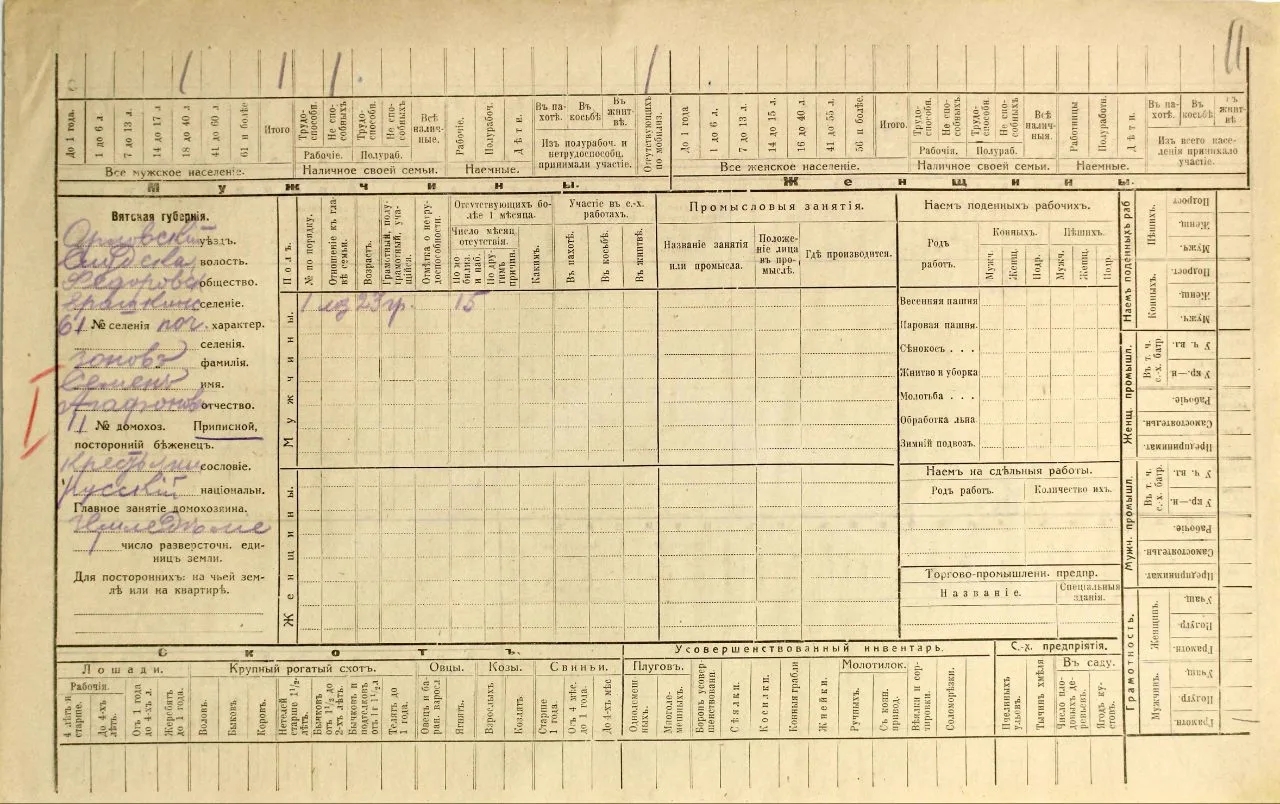 11
1 1 1. 1
До 1 года. 1 до 6 л. 7 до 13 л. 14 до 17 л 18 до 40 л 41 до 60 л 61 и болѣе Итого Трудоспособн. Не способныхъ Трудоспособн. Не способныхъ Всѣ наличные. Рабочіе. Полурабоч. Дѣти. Въ пахотѣ. Въ косьбѣ Въ жнитвѣ. Отсутствующихъ по мобилиз. До 1 года 1 до 6 л. 7 до 13 л. 14 до 15 л. 16 до 40 л. 41 до 55 л. 56 и болѣе. Итого. Трудоспособн. Не способныхъ Трудоспособн. Не способныхъ Всѣ наличн. Работницы Полуработн. Дѣти. Въ пахотѣ. Въ косьбѣ Въ жнитвѣ
Рабочіе. Полураб. Изъ полурабоч. и нетрудоспособн. принимали участіе. Рабочія. Полураб. Изъ всего населенія принимало участіе.
Все мужское населеніе. Наличное своей семьи. Наемные. Все женское населеніе. Наличное своей семьи. Наемные.
Мужчины. Женщины.
Вятская губернія.
Орловскій уѣздъ.
волость.
Федоровск общество.
селеніе.
61 № селенія поч. характер.
селенія.
Зоновъ фамилія.
Семенъ имя.
Агафонов отчество.
11 № домохоз. Приписной,
посторонній бѣженецъ.
Крестьянин сословіе.
Русскій національн.
Главное занятіе домохозяина.
Земледѣліе
число разверсточн. единицъ земли.
Для постороннихъ: на чьей землѣ или на квартирѣ.
Полъ. № по порядку. Отношеніе къ главѣ семьи. Возрастъ. Грамотный, полуграмотный, учащійся. Отмѣтка о нетрудоспособности. Отсутствующихъ болѣе 1 мѣсяца. Участіе въ с.-х. работахъ. Промысловыя занятія. Наемъ поденныхъ рабочихъ.
Число мѣсяц. отсутствія. По мобилиз. и наб. По другимъ причин. Какимъ. Въ пахотѣ. Въ косьбѣ. Въ жнитвѣ. Названіе занятія или промысла. Положеніе лица въ промыслѣ. Гдѣ производится. Родъ работъ. Конныхъ. Пѣшихъ.
Мужч. Женщ. Подр. Мужч. Женщ. Подр.
Мужчины. 1 хоз 23 гр. 15
Весенняя пашня
Паровая пашня.
Сѣнокосъ . . .
Жнитво и уборка
Молотьба . . .
Обработка льна
Зимній подвозъ.
Женщины.
Наемъ на сдѣльныя работы.
Родъ работъ. Количество ихъ.
Торгово-промышленн. предпр.
Названіе. Спеціальныя зданія.
Наемъ поденныхъ раб
Пѣшихъ. Подрост. Женщ. Мужч.
Конныхъ. Подрост. Женщ. Мужч.
Женщ. промышл. Въ т. ч. с.-х. батр. У ч. вл. У кр.—н. Рабочіе. Самостоятельн. Предпринимат.
Мужч. промышл. Въ т. ч. с.-х. батр. У ч. вл. У кр.—н. Рабочіе. Самостоятельн. Предпринимат.
Грамотность. Женщинъ. Учащ. Полугр. Грамотн. Мужчинъ. Учащ. Полугр. Грамотн.
Скотъ. Усовершенствованный инвентарь. С.-х. предпріятія.
Лошади. Крупный рогатый скотъ. Овцы. Козы. Свиньи. Плуговъ. Молотилок. Въ саду.
Рабочія. 4 лѣтъ и старше. До 4-хъ лѣтъ. Отъ 1 года до 4-хъ л. Жеребятъ до 1 года. Воловъ. Быковъ. Коровъ. Нетелей старше 1½ лѣтъ. Бычковъ отъ 1½ до 2-хъ лѣтъ. Бычковъ и подтелковъ отъ 1 г 1½ л Телятъ до 1 года. Овецъ и баран. взросл Ягнятъ. Взрослыхъ Козлятъ. Старше 1 года. Отъ 4 мѣс. до 1 года. До 4-хъ мѣс Однолемешныхъ. Многолемешныхъ. Боронъ усовершенствованн. Сѣялки. Косилки. Конныя грабли Жнейки. Ручныхъ. Съ конн. привод. Вѣялки и сортировки. Соломорѣзки. Пчелиныхъ ульевъ. Тычинъ хмѣля Число плодовыхъ деревьевъ. Ягодн кустовъ.